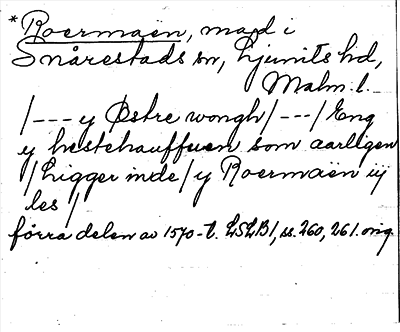 *Roermaën, mad i
Snårestads sn, Ljunits hd,
Malm. l.
/--- y Østre wongh/---/Eng
y hestehauffuen som aarligen
/Ligger inde/ y Roermaën iij
les /
förra delen av 1570-t. LSLB1, ss. 260, 261. orig.